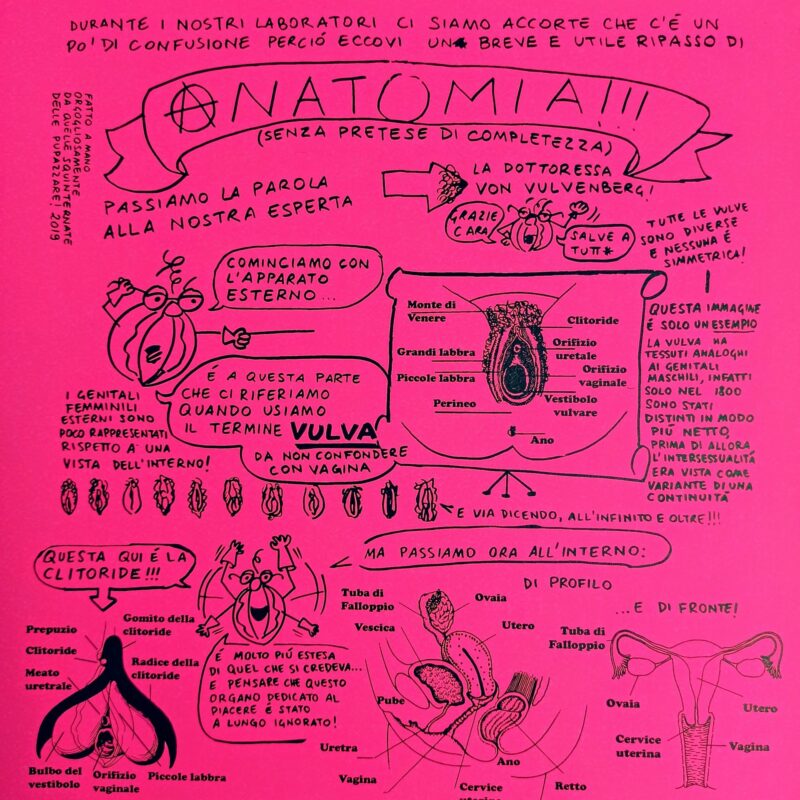 DURANTE I NOSTRI LABORATORI CI SIAMO ACCORTE CHE C'É UN
PO' DI CONFUSIONE PERCIÓ ECCOVI UN BREVE E UTILE RIPASSO DI
ANATOMIA!!!
(SENZA PRETESE DI COMPLETEZZA)
FATTO A MANO
ORGOGLIOSAMENTE
DA QUELLE SQUINTERNATE
DELLE PUPAZZARE! 2019
PASSIAMO LA PAROLA
ALLA NOSTRA ESPERTA
LA DOTTORESSA
VON VULVENBERG!
GRAZIE
CARA
SALVE A
TUTT*
TUTTE LE VULVE
SONO DIVERSE
E NESSUNA É
SIMMETRICA!
COMINCIAMO CON
L'APPARATO
ESTERNO...
Monte di
Venere
Clitoride
Orifizio
uretale
Grandi labbra
Orifizio
vaginale
Piccole labbra
Vestibolo
vulvare
Perineo
Ano
QUESTA IMMAGINE
É SOLO UN ESEMPIO
LA VULVA HA
TESSUTI ANALOGHI
AI GENITALI
MASCHILI, INFATTI
SOLO NEL 1800
SONO STATI
DISTINTI IN MODO
PIÚ NETTO,
PRIMA DI ALLORA
L'INTERSESSUALITÁ
ERA VISTA COME
VARIANTE DI UNA
CONTINUITÁ
É A QUESTA PARTE
CHE CI RIFERIAMO
QUANDO USIAMO
IL TERMINE VULVA
DA NON CONFONDERE
CON VAGINA
I GENITALI
FEMMINILI
ESTERNI SONO
POCO RAPPRESENTATI
RISPETTO A UNA
VISTA DELL'INTERNO!
E VIA DICENDO, ALL'INFINITO E OLTRE!!!
QUESTA QUI É LA
CLITORIDE!!!
MA PASSIAMO ORA ALL'INTERNO:
DI PROFILO
...E DI FRONTE!
Prepuzio
Gomito della
clitoride
Clitoride
Radice della
clitoride
Meato
uretrale
Bulbo del
vestibolo
Orifizio
vaginale
Piccole labbra
É MOLTO PIÚ ESTESA
DI QUEL CHE SI CREDEVA...
E PENSARE CHE QUESTO
ORGANO DEDICATO AL
PIACERE É STATO
A LUNGO IGNORATO!
Tuba di
Falloppio
Ovaia
Vescica
Utero
Pube
Uretra
Ano
Vagina
Cervice
uterina
Retto
Tuba di
Falloppio
Ovaia
Utero
Cervice
uterina
Vagina